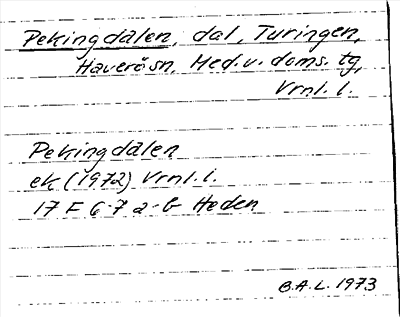 Pekingdalen, dal, Turingen,
Haverösn, Med. v. doms. tg,
Vrnl. l.
Pekingdalen
ek (1972) Vrnl. l.
17 F 6-7 a-b Heden
B.A.L. 1973